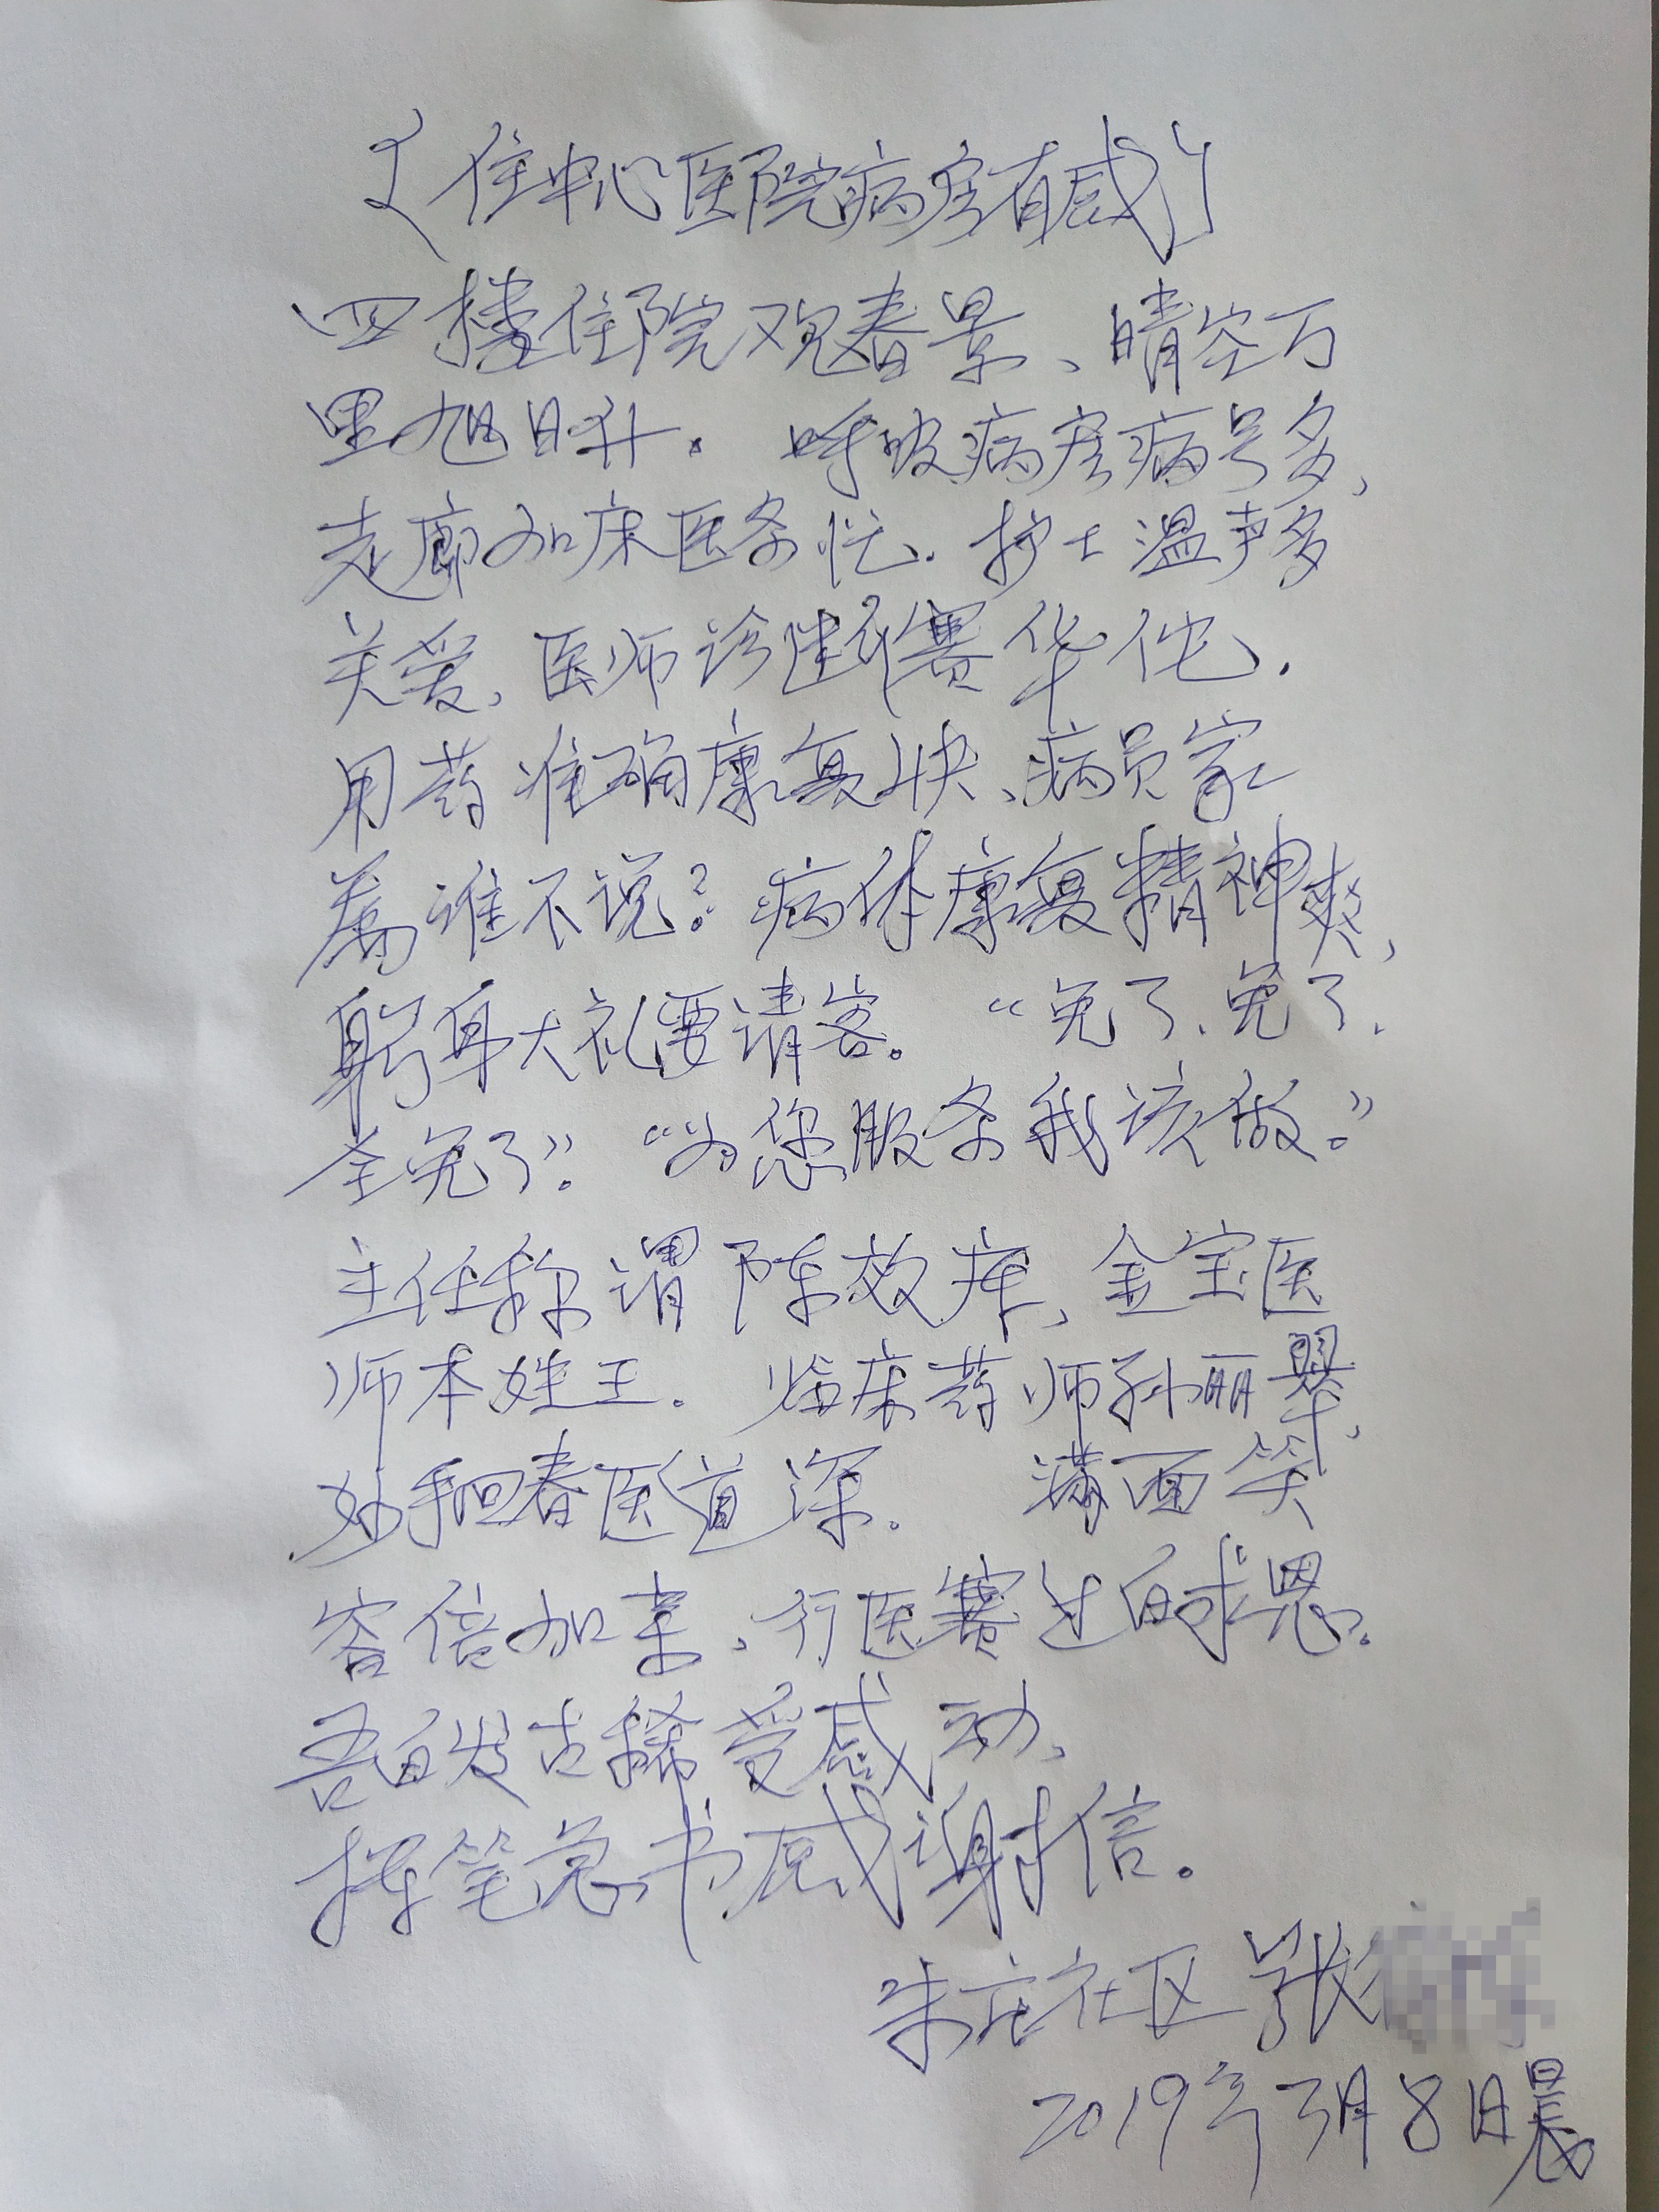 《住中心医院病房有感》
四楼住院观春景、晴空万
里旭日升。呼吸病房病号多、
走廊加床医务忙.护士温声多
关爱、医师诊断赛华佗.
用药准确康复快、病员家
属谁不说?病体康复精神爽、
躬身大礼要请客。“免了、免了、
全免了”。“为您服务我该做。”
主任称谓陈效库、金宝医
师本姓王.临床药师孙丽翠、
妙手回春医道深.满面笑
容倍加亲、行医赛过白求恩。
吾白发古稀受感动、
挥笔急书感谢信。
朱庄社区 张
2019年3月8日晨